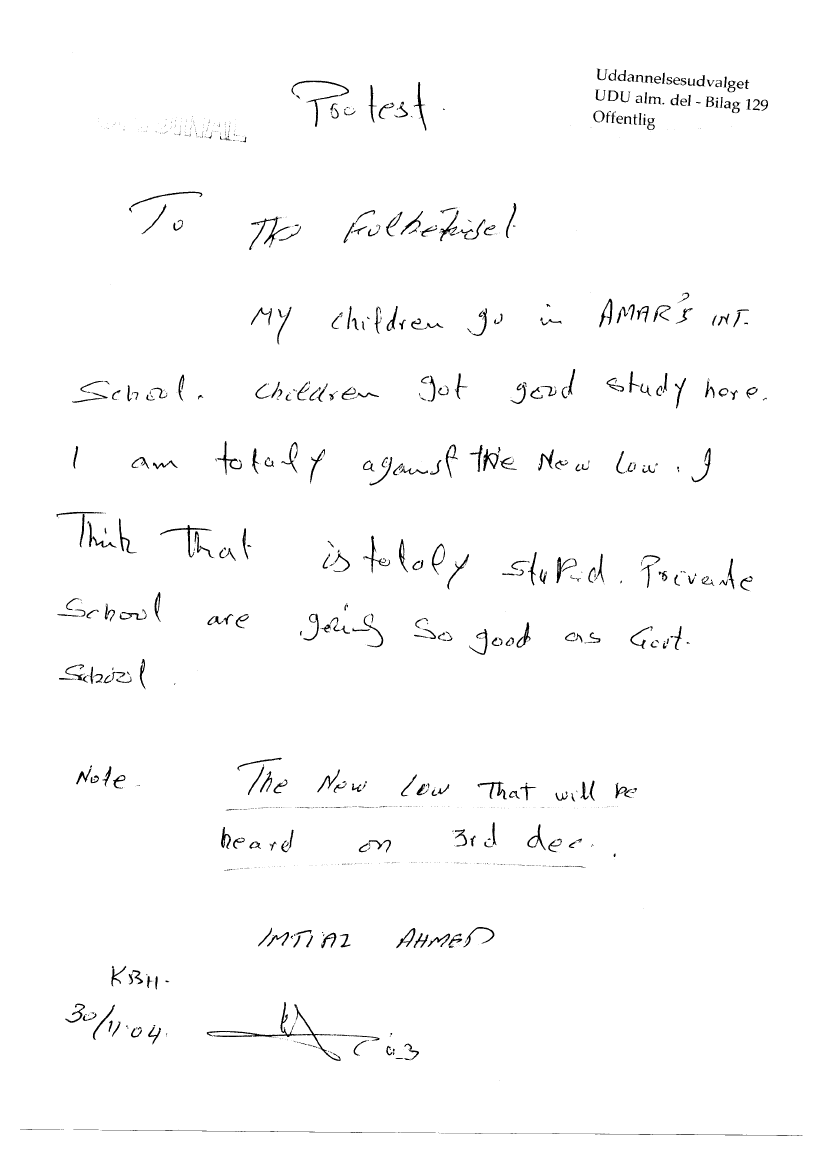 Uddannelsesudvalget
UDU alm. del - Bilag 129
Offentlig
Protest.
To The Folketinget
MY children go in AMAR'S INT.
School. children got good study here.
I am totaly against the New Low. I
Think That is totaly stupid. Private
School are going so good as Govt.
School.
Note. The New Low That will be
heard on 3rd dec.
IMTIAZ AHMED
KBH.
30/11-04.